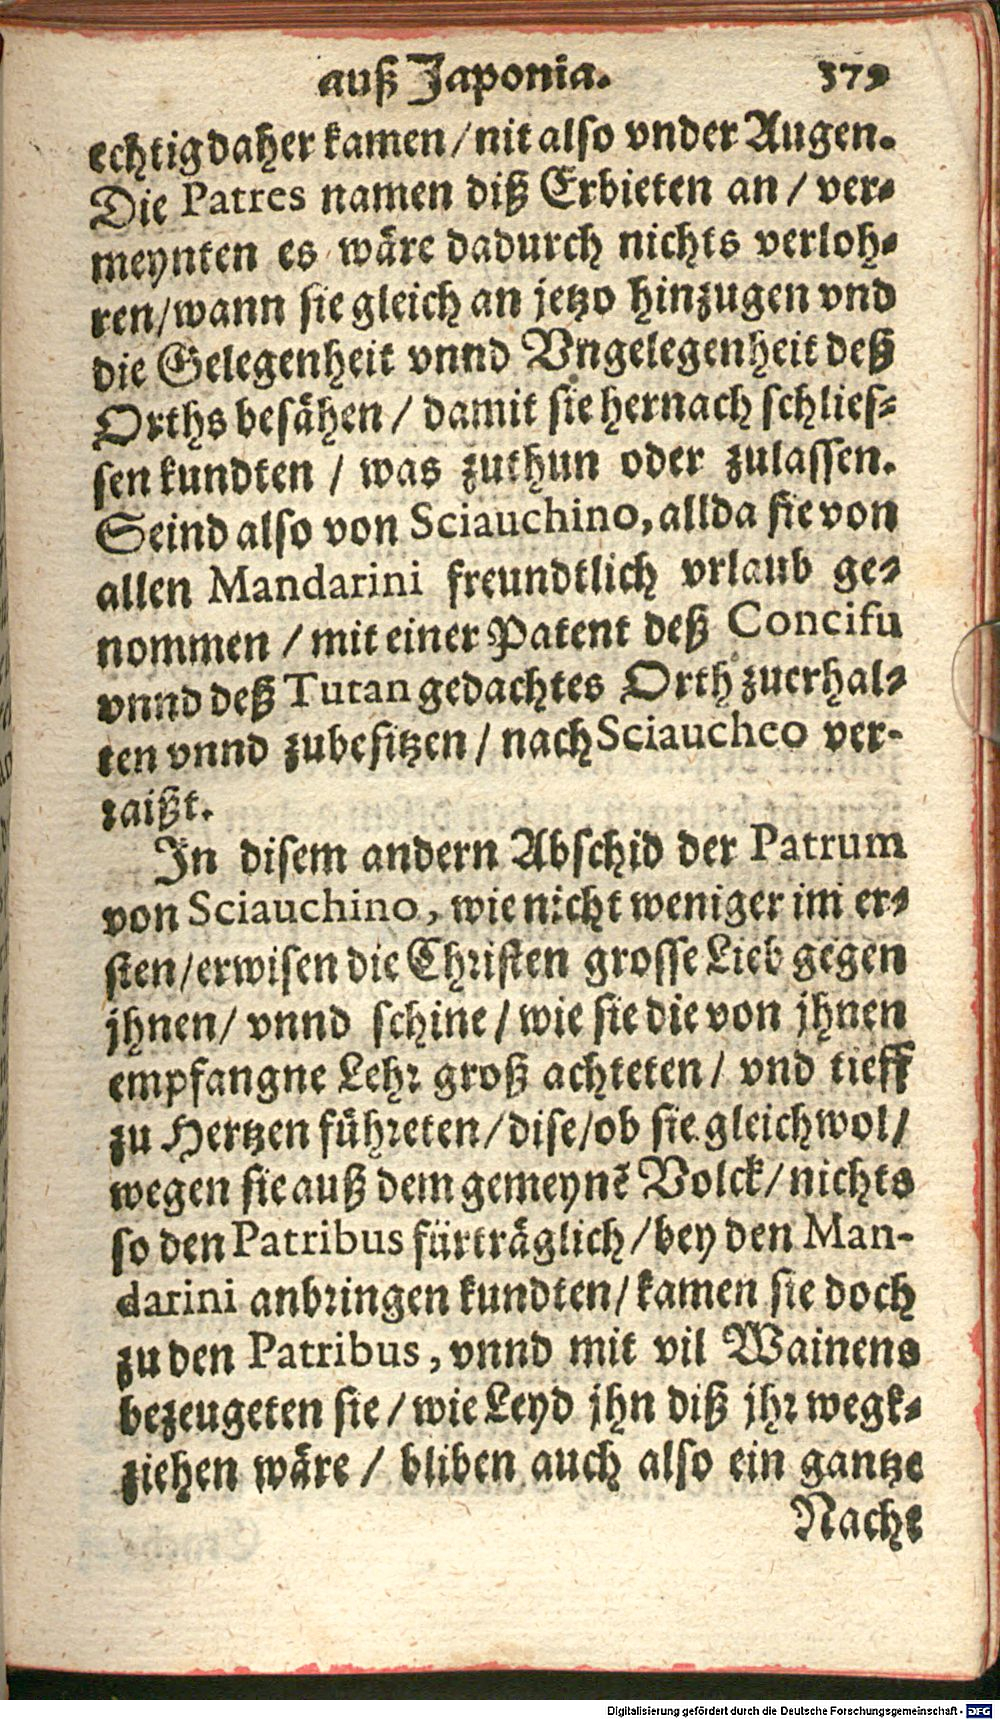 auß Japonia. 379
echtig daher kamen / nit also vnder Augen.
Die Patres namen diß Erbieten an / ver⸗
meynten es wäre dadurch nichts verloh⸗
ren / wann sie gleich an jetzo hinzugen vnd
die Gelegenheit vnnd Vngelegenheit deß
Orths besähen / damit sie hernach schlies⸗
sen kundten / was zuthun oder zulassen.
Seind also von Sciauchino, allda sie von
allen Mandarini freundtlich vrlaub ge⸗
nommen / mit einer Patent deß Concifu
vnnd deß Tutan gedachtes Orth zuerhal⸗
ten vnnd zubesitzen / nach Sciaucheo ver-
raißt.
In disem andern Abschid der Patrum
von Sciauchino, wie nicht weniger im er⸗
sten / erwisen die Christen grosse Lieb gegen
jhnen / vnnd schine / wie sie die von jhnen
empfangne Lehr groß achteten / vnd tieff
zu Hertzen führeten / dise / ob sie gleichwol /
wegen sie auß dem gemeynẽ Volck / nichts
so den Patribus fürträglich / bey den Man-
darini anbringen kundten / kamen sie doch
zu den Patribus, vnnd mit vil Wainens
bezeugeten sie / wie Leyd jhn diß jhr wegk⸗
ziehen wäre / bliben auch also ein gantze
Nacht
Digitalisierung gefördert durch die Deutsche Forschungsgemeinschaft - DFG